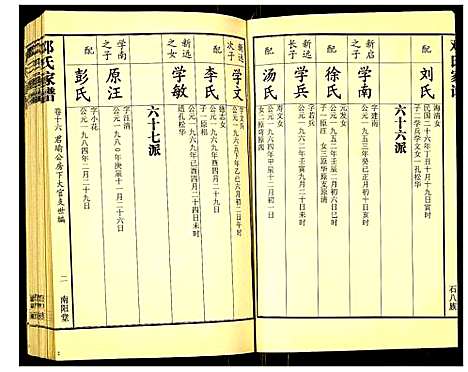 邓氏家谱
石八族
配
刘氏
海清女
民国二十六年丁丑十月十九亥时
子二学兵学文女一孔松华
六十六派
新启之子
学南
字建南
公元一九五三年癸巳正月初十日
配
徐氏
元发女
公元一九五二年壬辰
子一原汪女三原华原支原清
新选长子
学兵
字若兵
公元一九六二年壬寅九月二十日未时
配
汤氏
寿文女
公元一九六四年甲辰十二月初一日
女二原琦原茜
新选次子
学文
字文兵
公元一九六五年乙巳六月初二日午时
配
李氏
德志女
公元一九六九年己酉四月二十九日酉时
子一原
新选之女
学敏
公元一九六九年己酉四月二十四日时
适孔松华
六十七派
学南之子
原汪
字汪清
公元一九八〇年庚辰十一月二十六日
配
彭氏
字小花
公元一九八四年二月二十九日
邓氏家谱
卷十六 君瑜公房下大官支世编
二
南阳堂